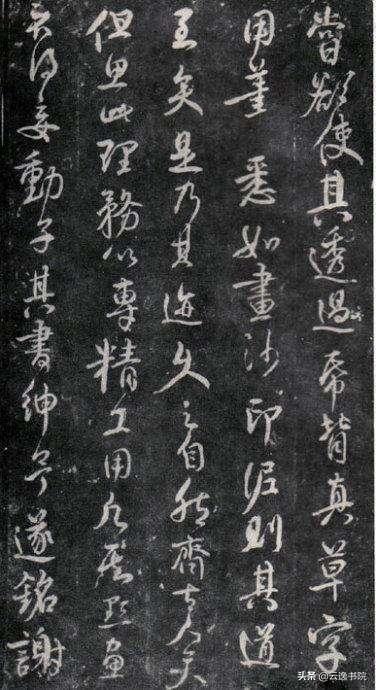 常欲使其透過帋背真草字
用筆悉如畫沙印泥則其道
至矣是乃其迹久之自然齊古人矣
但思此理務以專精工用點畫
不得妄動子其書紳余遂銘謝
头条 @云逸书院